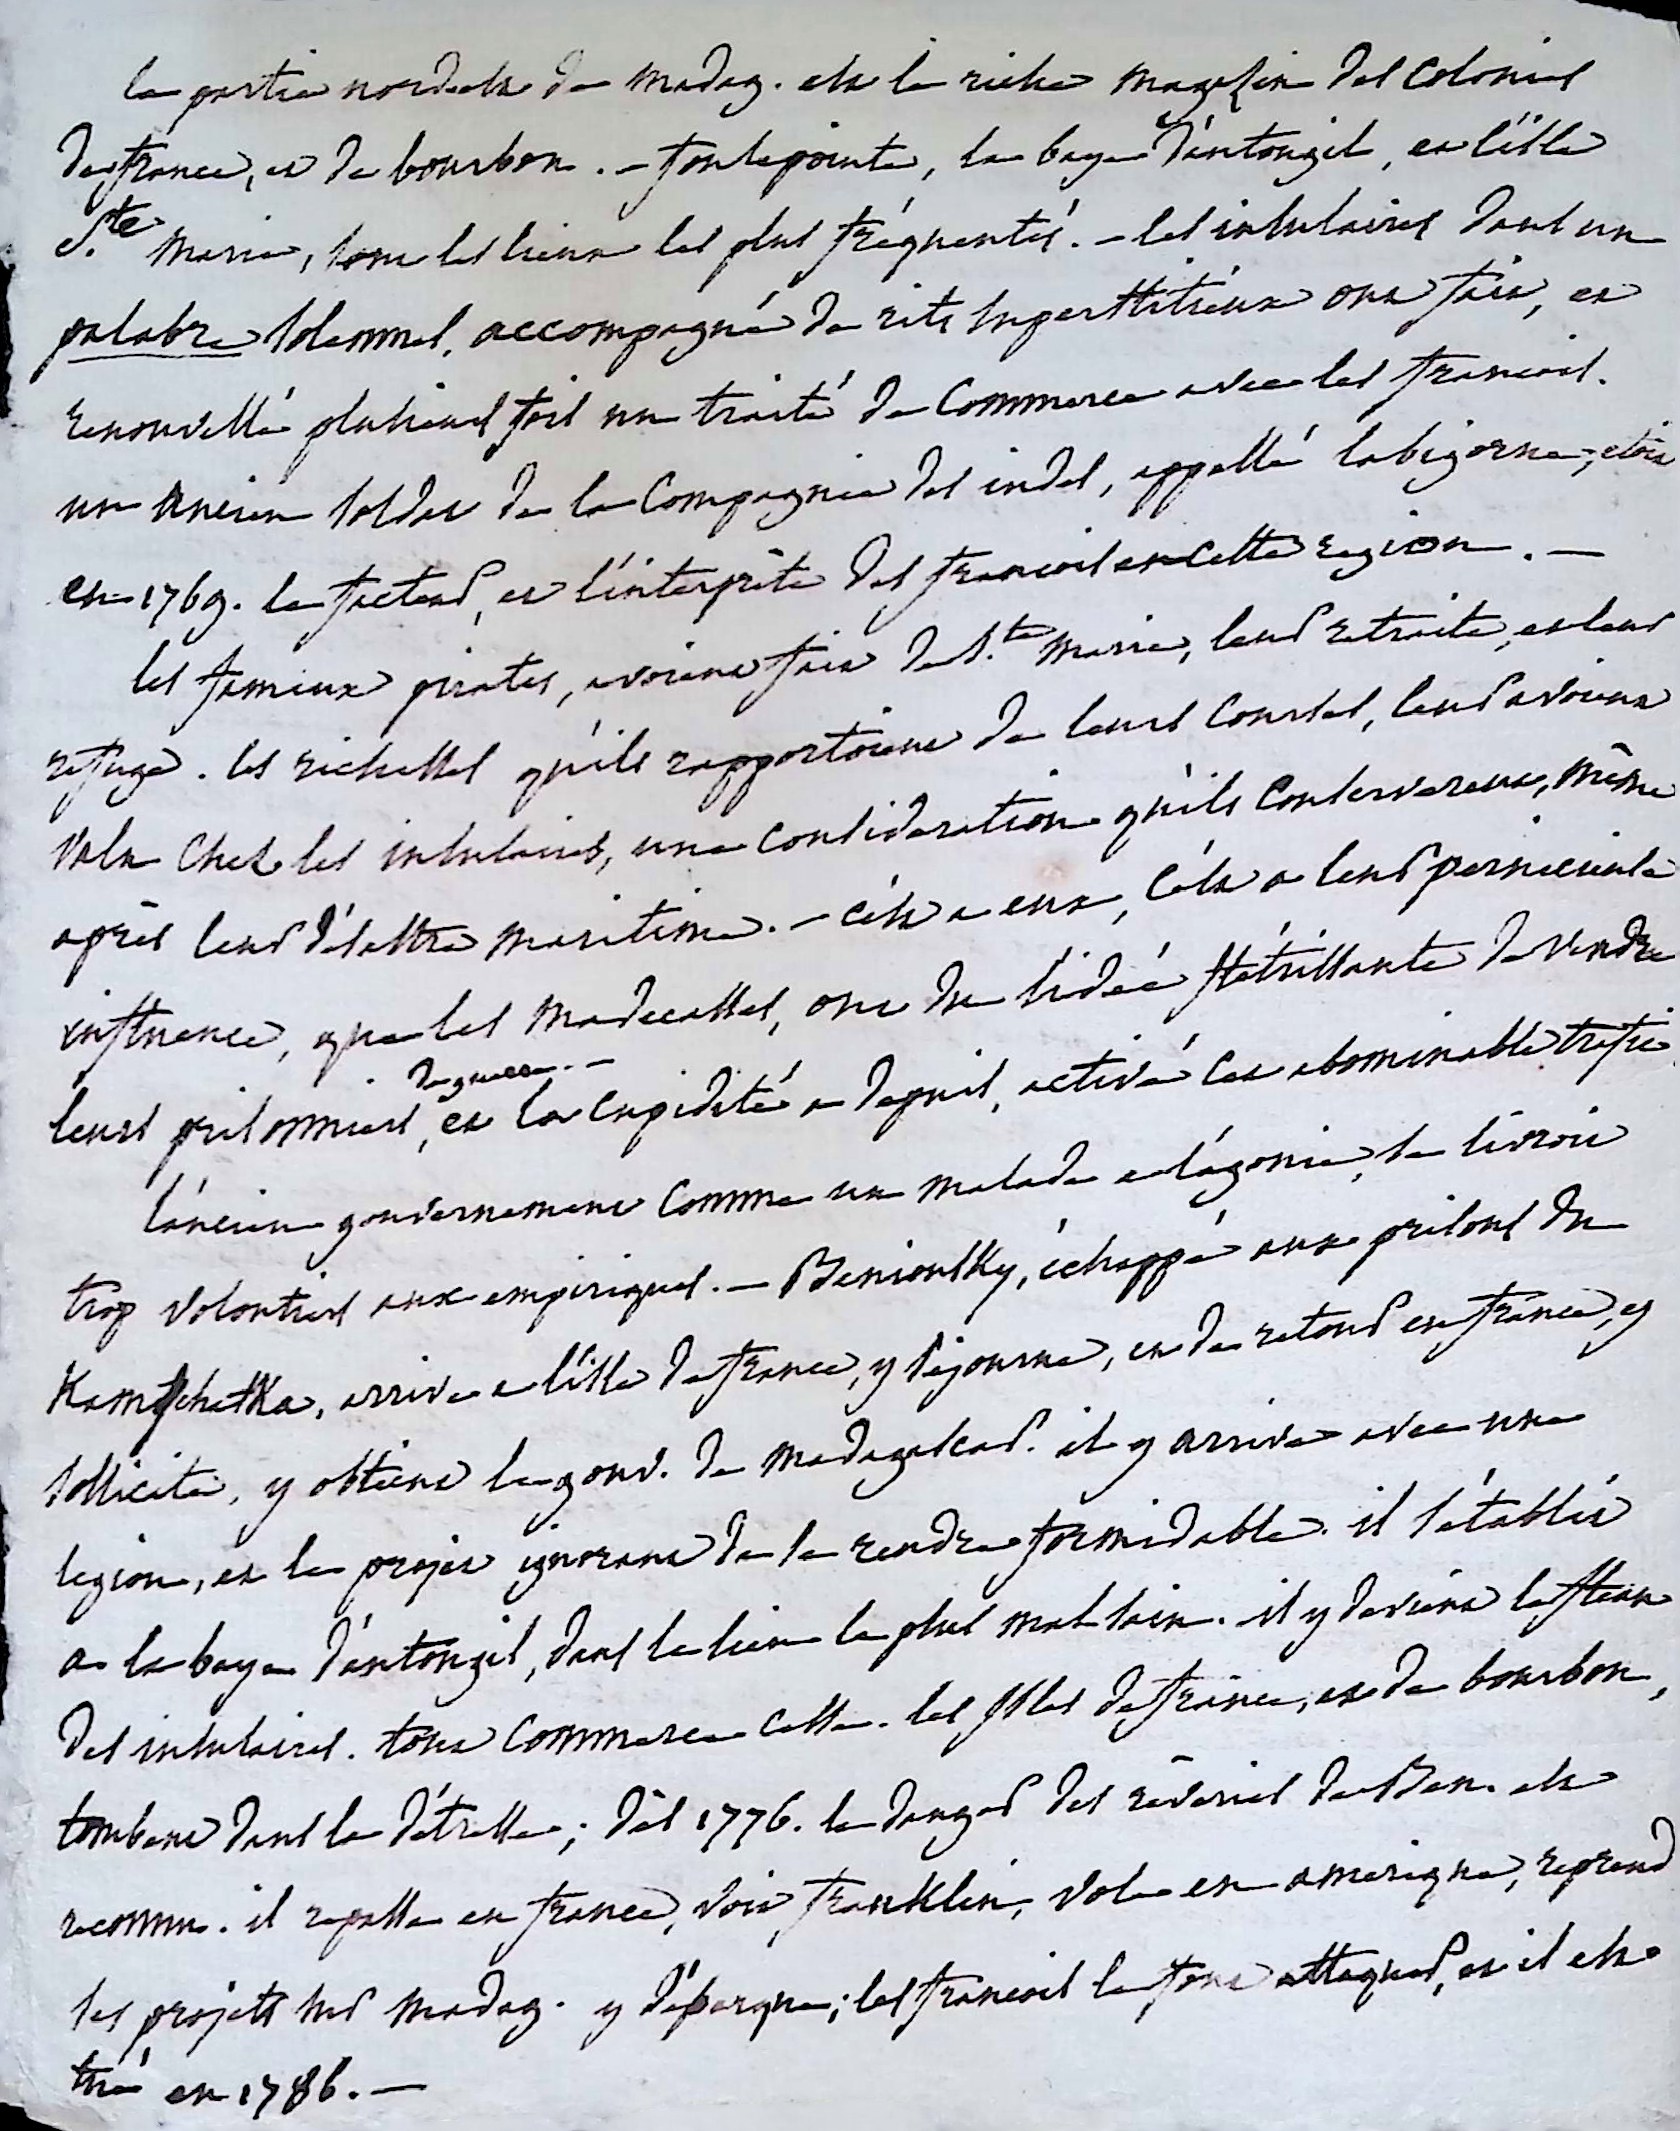 la partie nordest de madag. est le riche magasin des colonies
de france, et de bourbon. - foulepointe, la baye d'antongil, et l'isle
S.te marie, sont les lieux les plus fréquentés. - les insulaires dans un
palabre solemnel, accompagné de rits superstitieux ont fait, et
renouvellé plusieurs fois un traité de commerce avec les francois.
un ancien soldat de la compagnie des indes, appellé labigorne, etoit
en 1769. le facteur, et l'interprête des francois en cette region. -
les fameux pirates, avoient fait de S.te marie, leur retraite, et leur
refuge. les richesses qu'ils rapportoient de leurs courses, leur avoient
valu chez les insulaires, une consideration qu'ils conserverent, même
après leur désastre maritime. - c'est a eux, c'est a leur pernicieuse
influence, que les madecasses, ont du l'idée flétrissante de vendre
leurs prisonniers de guerre. -, et la cupidité a depuis, activé cet abominable trafic
l'ancien gouvernement comme un malade a l'agonie, se livroit
trop volontiers aux empiriques. - Beniousky, échappé aux prisons du
Kamschatka, arrive a l'isle de france, y séjourne, et de retour en france, y
sollicite, y obtient le gouv. de madagascar. il y arrive avec une
legion, et le projet ignorant de se rendre formidable. il s'établit
a la baye d'antongil, dans le lieu le plus mal sain. il y devient le fleau
des insulaires. tout commerce cesse. les isles de france, et de bourbon,
tombent dans la détresse; dès 1776. le danger des rêveries de Ben. est
reconnu. il repasse en france, voit franklin, vole en amerique, reprend
ses projets sur madag. y débarque; les francois le font attaquer, et il est
tué en 1786. -